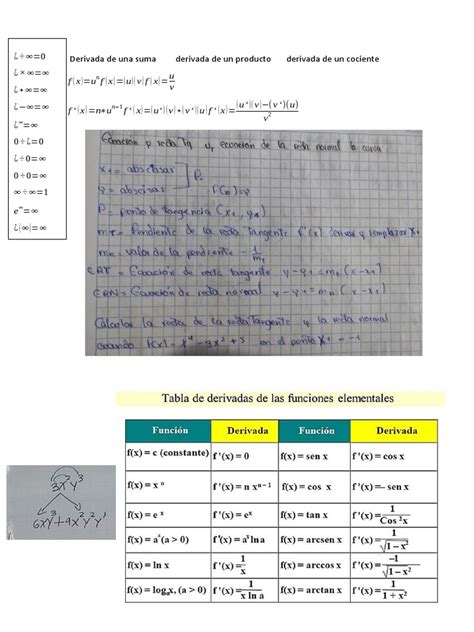 ¿÷∞=0
¿×∞=∞
¿+∞=∞
¿−∞=∞
¿^∞=∞
0÷¿=0
¿÷0=∞
0÷0=∞
∞÷∞=1
e^∞=∞
¿(∞)=∞
Derivada de una suma derivada de un producto derivada de un cociente
f(x)=u^n f(x)=(u)(v) f(x)=u/v
f'(x)=n*u^(n−1) f'(x)=(u')(v)+(v')(u) f'(x)=((u')(v)−(v')(u))/v^2
Ecuación p recta Tg y ecuación de la recta normal la curva
x1 = abscisas
y = abscisas
P.
P = punto de tangencia (x1, y1)
mT = Pendiente de la recta Tangente f'(x) derivar y remplazar x1
mn = valor de la pendiente − 1/mT
ERT = Ecuación de recta tangente y−y1 = mt (x−x1)
ERN = Ecuación de recta normal y−y1 = mn (x−x1)
Calcular la recta de la recta Tangente y la recta normal
cuando f(x) = x^4 − 9x^2 + 3 en el punto x1 = −1
Tabla de derivadas de las funciones elementales
Función Derivada Función Derivada
f(x) = c (constante) f'(x) = 0 f(x) = sen x f'(x) = cos x
f(x) = x^n f'(x) = n x^(n−1) f(x) = cos x f'(x) = − sen x
f(x) = e^x f'(x) = e^x f(x) = tan x f'(x) = 1/Cos^2x
f(x) = a^x (a > 0) f'(x) = a^x ln a f(x) = arcsen x f'(x) = 1/√(1−x^2)
f(x) = ln x f'(x) = 1/x f(x) = arccos x f'(x) = −1/√(1−x^2)
f(x) = log_a x, (a > 0) f'(x) = 1/(x ln a) f(x) = arctan x f'(x) = 1/(1+x^2)
3x²y³
6xy³+9x²y²y'